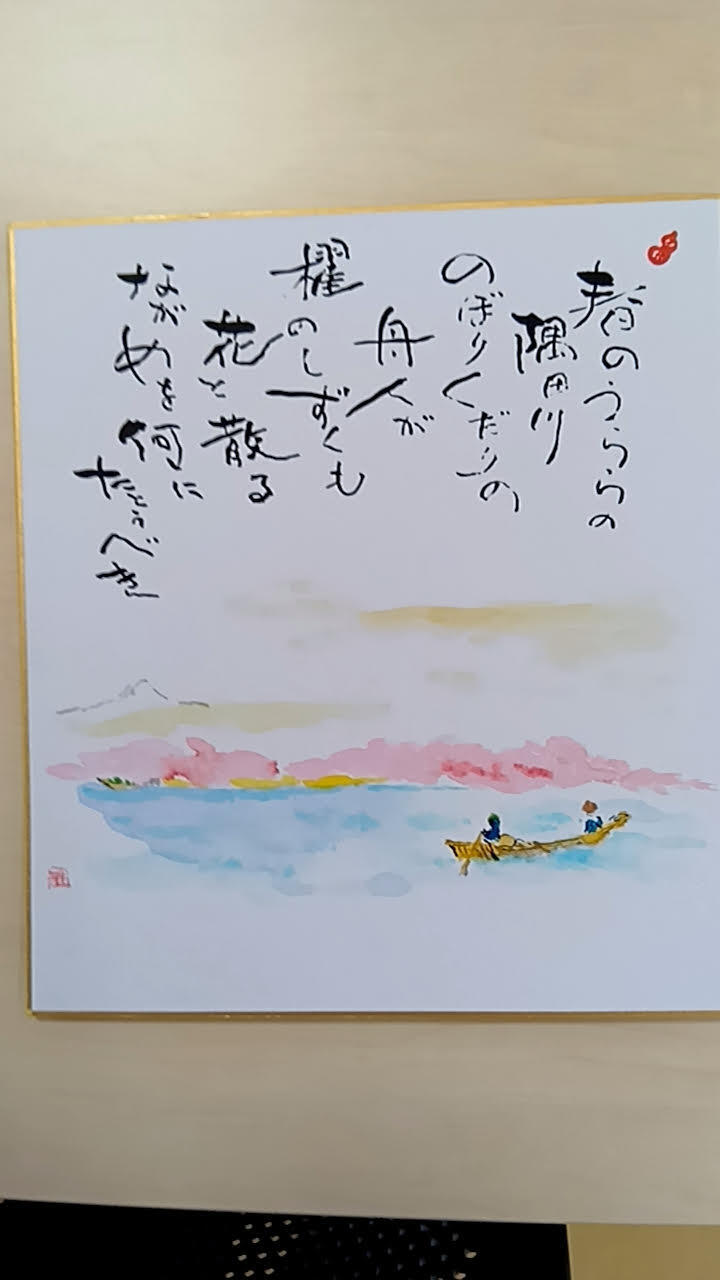 春のうららの
隅田川
のぼりくだりの
舟人が
櫂のしずくも
花と散る
ながめを何に
たとうべき